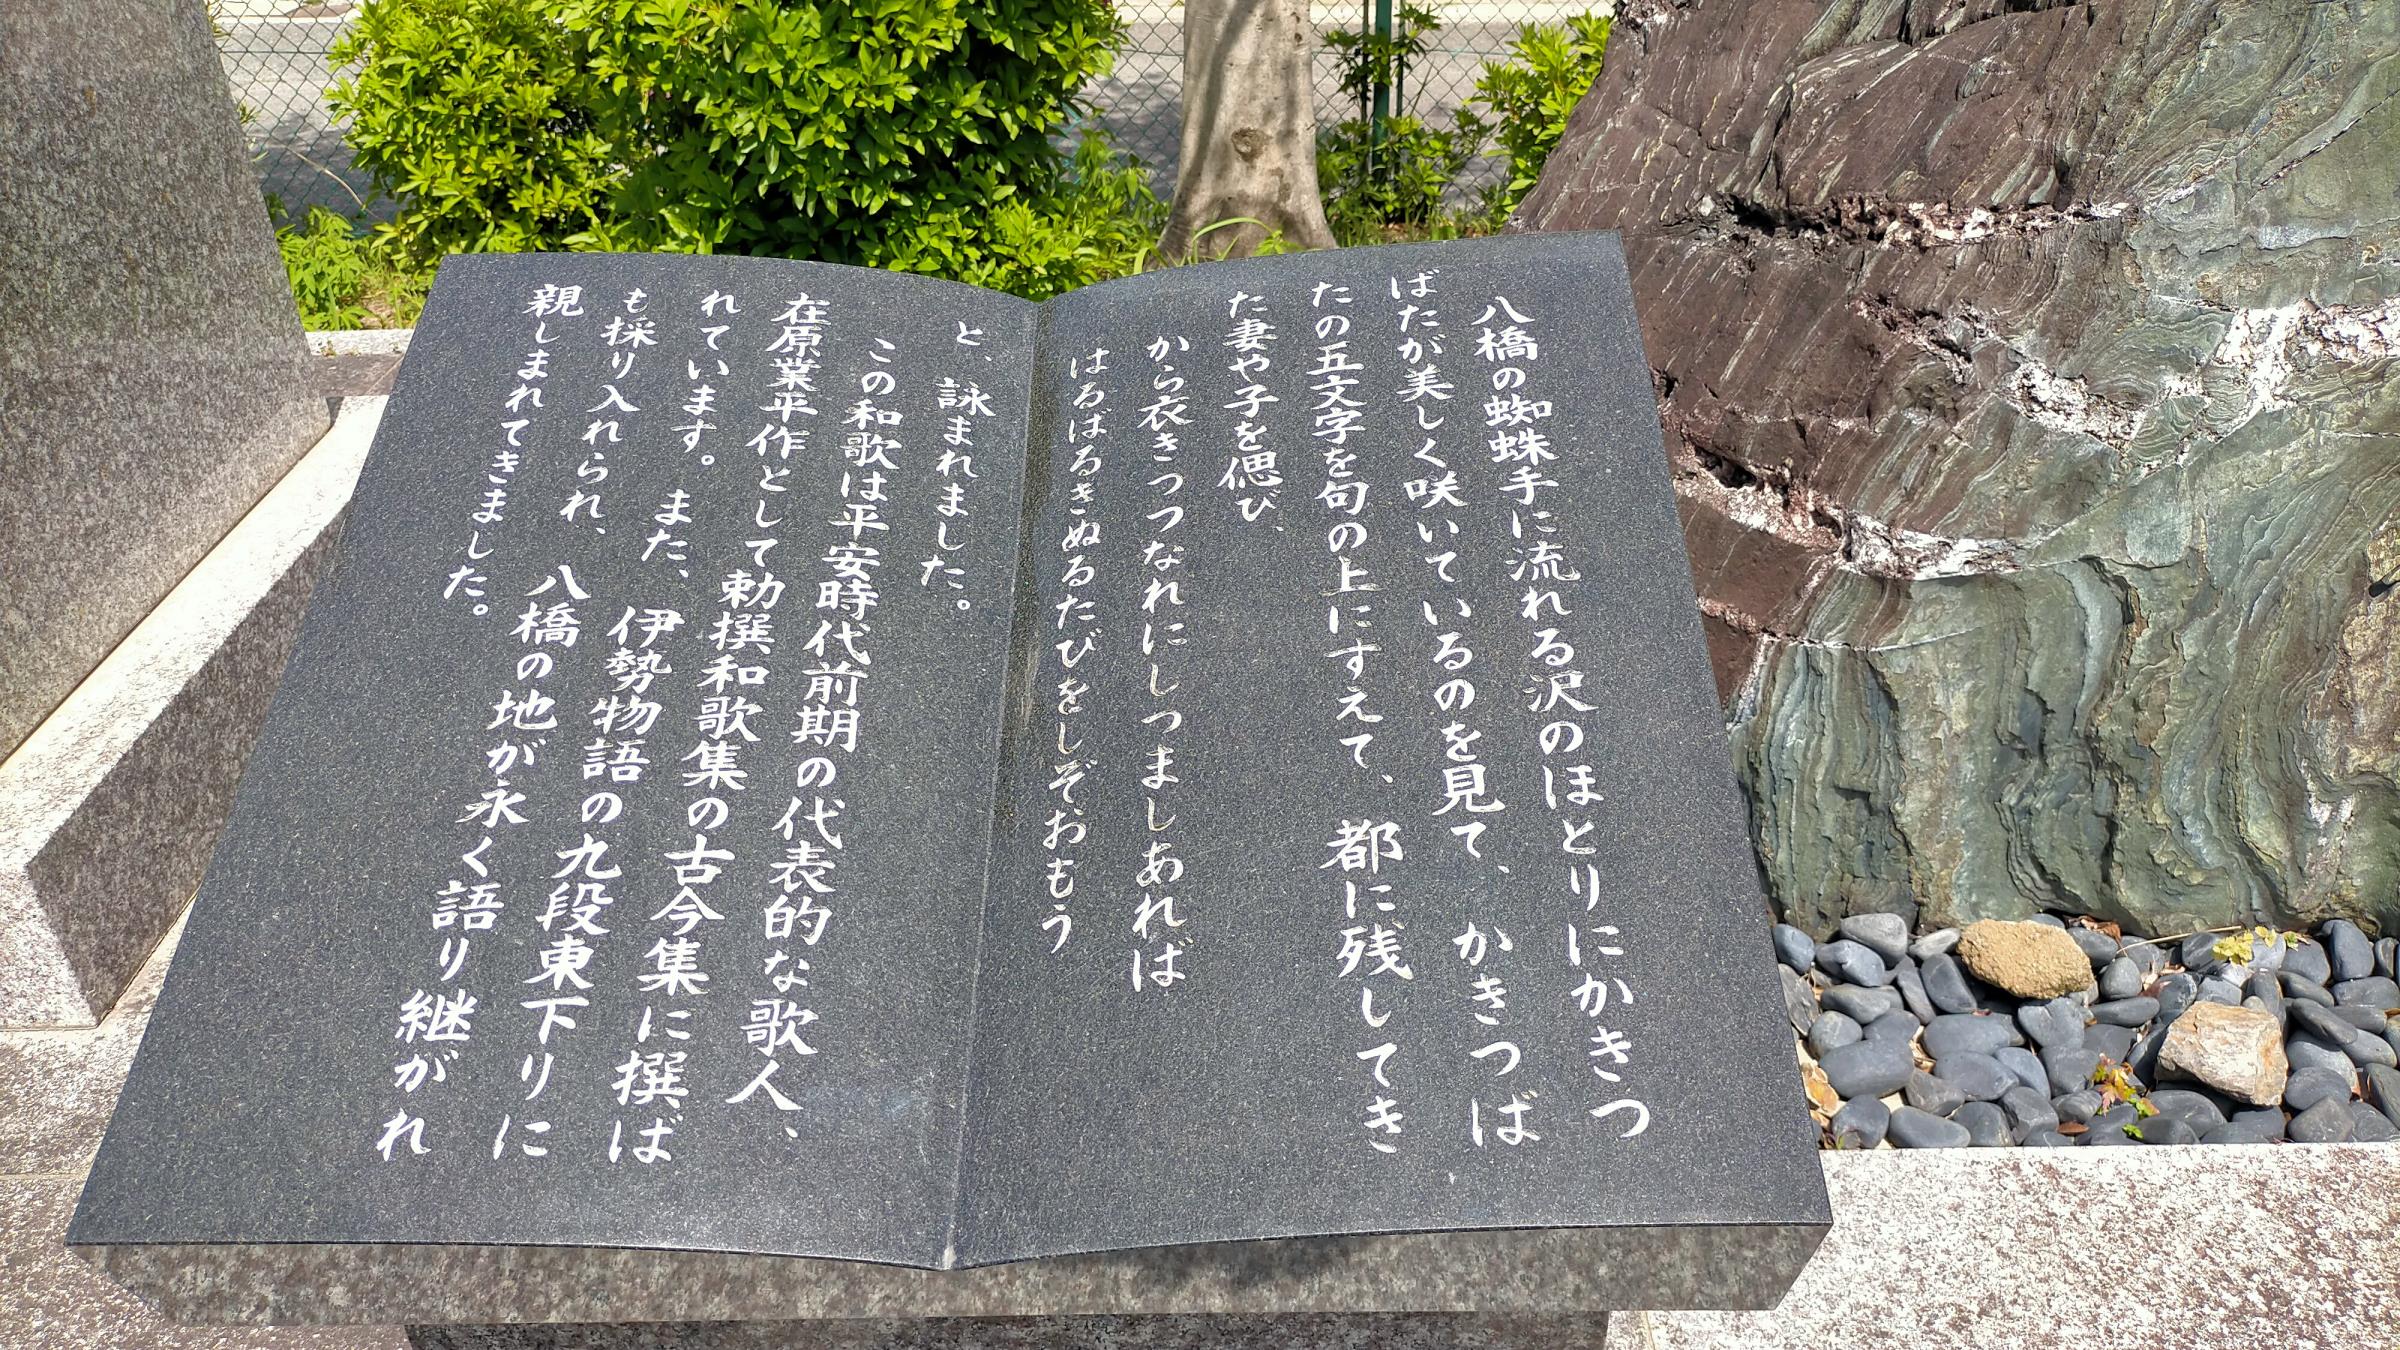 八橋の蜘蛛手に流れる沢のほとりにかきつ
ばたが美しく咲いているのを見て、かきつば
たの五文字を句の上にすえて、都に残してき
た妻や子を偲び、
から衣きつつなれにしつましあれば
はるばるきぬるたびをしぞおもう
と、詠まれました。
この和歌は平安時代前期の代表的な歌人、
在原業平作として勅撰和歌集の古今集に撰ば
れています。また、伊勢物語の九段東下りに
も採り入れられ、八橋の地が永く語り継がれ
親しまれてきました。